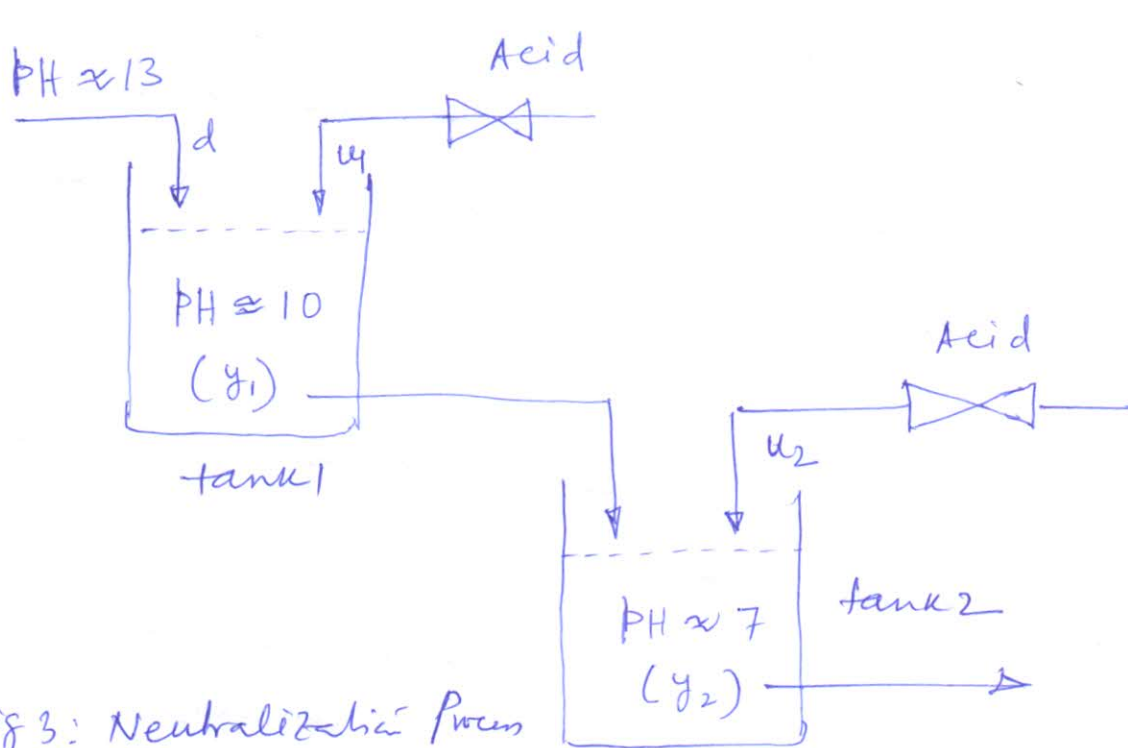 Acid
pH ≈ 13
d
u1
pH ≈ 10
(y1)
tank1
Acid
u2
pH ≈ 7
(y2)
tank2
g 3: Neutralization Process